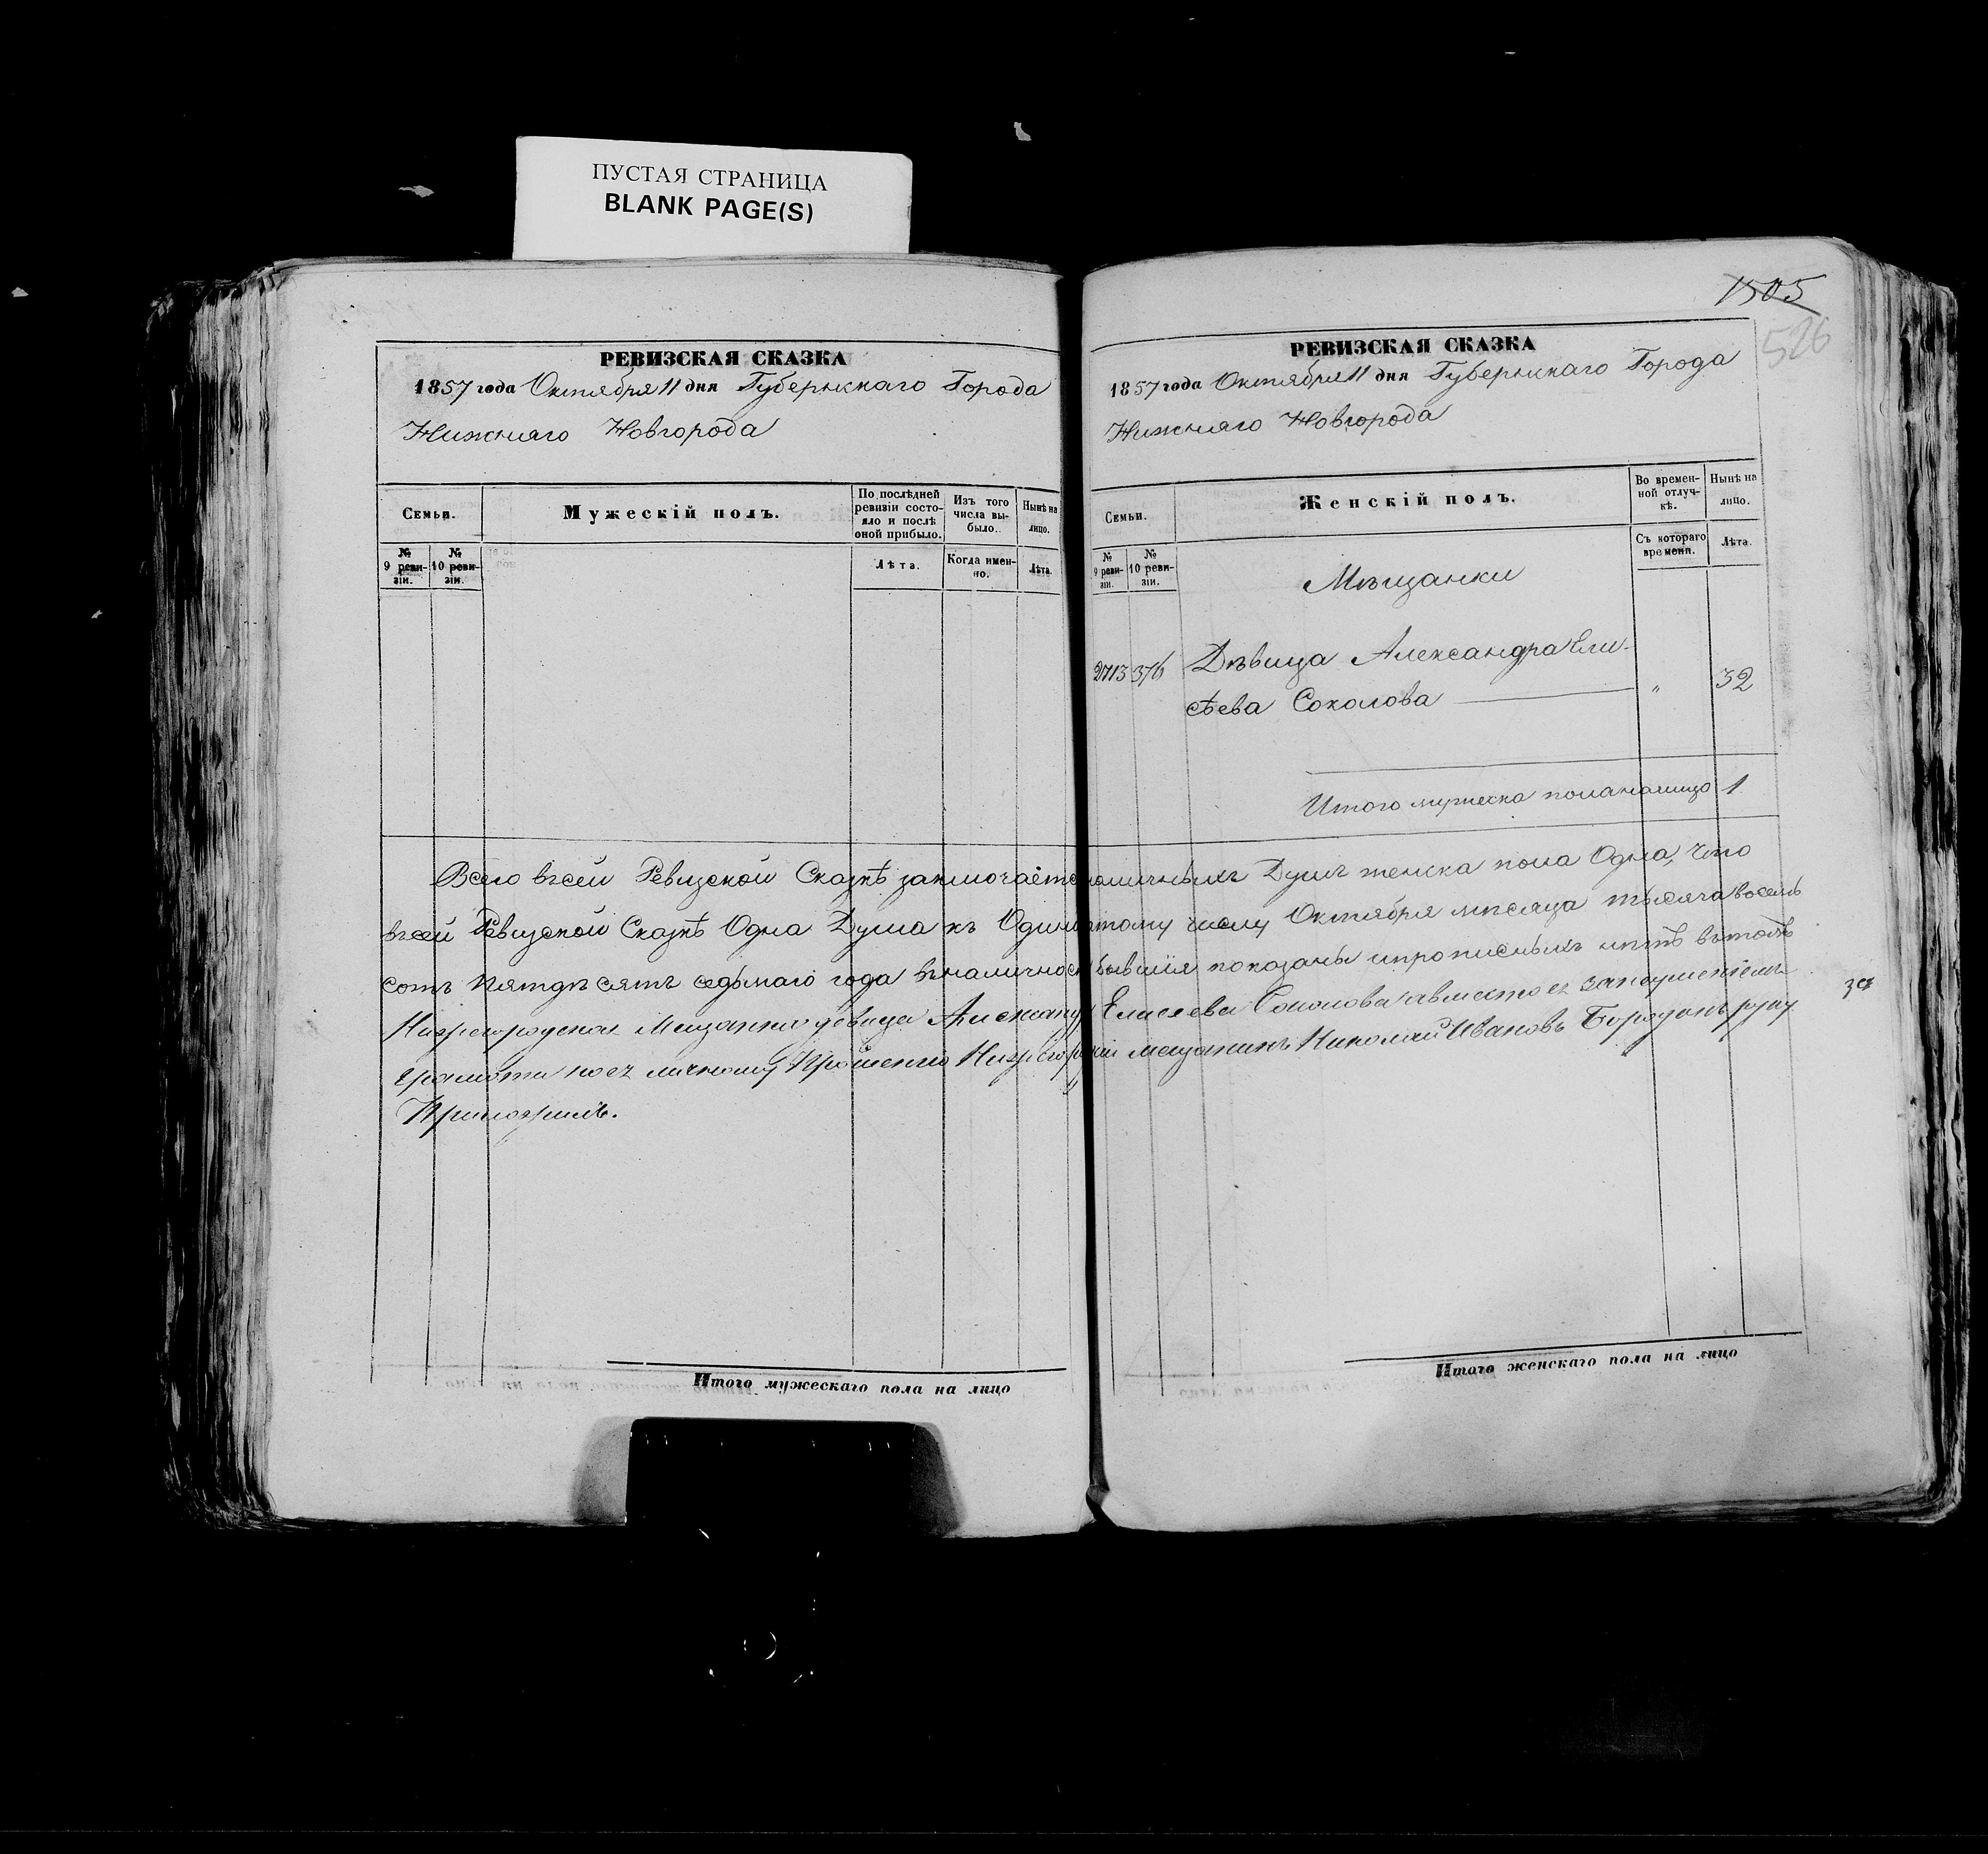 ПУСТАЯ СТРАНИЦА
BLANK PAGE(S)
РЕВИЗСКАЯ СКАЗКА
1857 года Октября 11 дня Губернскаго Города
Нижняго Новгорода
Семьи.
Мужескій полъ.
По послѣдней ревизіи состояло и послѣ оной прибыло.
Изъ того числа выбыло.
Нынѣ на лицо.
№ 9 ревизіи.
№ 10 ревизіи.
Лѣта.
Когда именно.
Лѣта.
1505
526
РЕВИЗСКАЯ СКАЗКА
1857 года Октября 11 дня Губернскаго Города
Нижняго Новгорода
Семьи.
Женскій полъ.
Во временной отлучкѣ.
Нынѣ на лицо.
№ 9 ревизіи.
№ 10 ревизіи.
Съ котораго времени.
Лѣта.
Мѣщанки
2713 376 Дѣвица Александра Ели-
сѣева Соколова „ 32
Итого мужеска пола налицо 1
Всего всей Ревизской Сказкѣ заключается наличныхъ Душъ женска пола Одна, что
всей Ревизской Сказкѣ Одна Душа къ Одинатому числу Октября мѣсяца тысяча восемь
сотъ пятдѣсятъ седьмаго года вналичнос бывшія показаны ипрописныхъ нѣтъ втомъ
Нижегородская Мещанка девица Елисеева Соколова авместо ея
за
грамоты поея личному Прошению мещанинъ Николай Ивановъ руку
Приложилъ.
Итого мужескаго пола на лицо
Итого женскаго пола на лицо